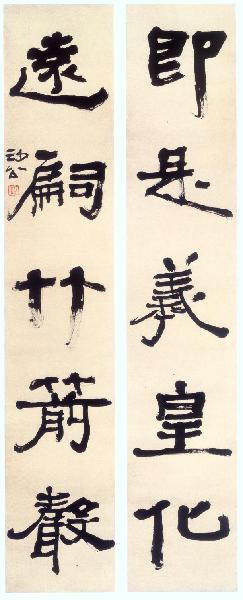 即是羲皇化
遠嗣竹箭聲